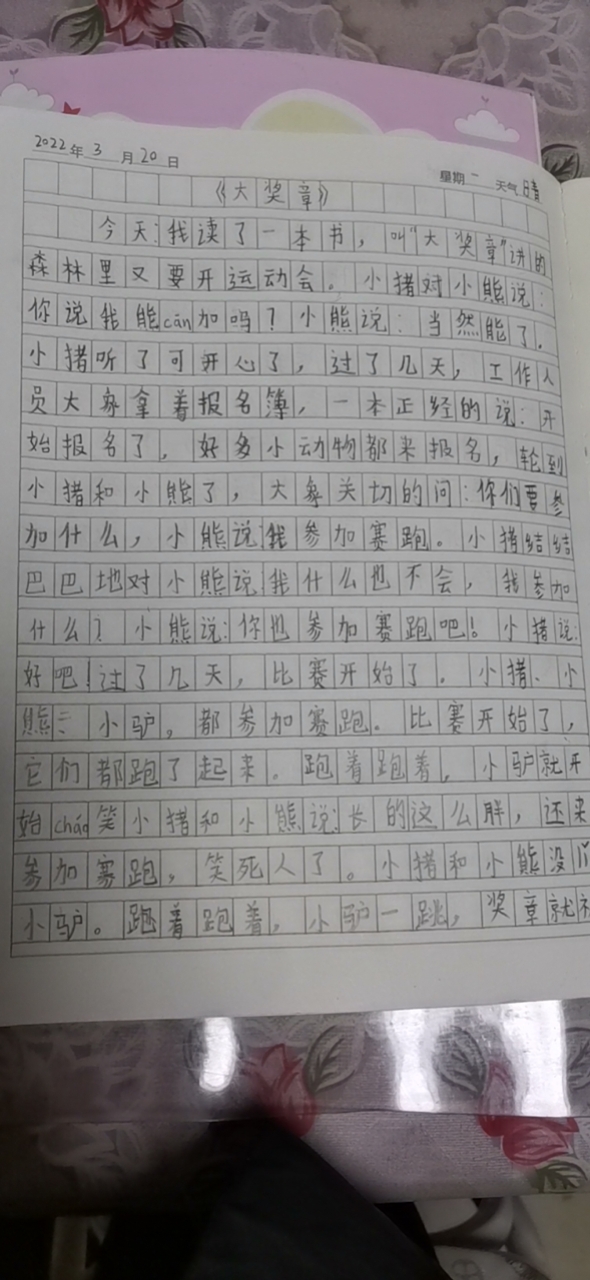 2022年3月20日 星期一 天气晴
《大奖章》
今天:我读了一本书，叫"大奖章"讲的
森林里又要开运动会。小猪对小熊说:
你说我能cān加吗？小熊说:当然能了.
小猪听了可开心了，过了几天，工作人
员大象拿着报名簿，一本正经的说:开
始报名了，好多小动物都来报名，轮到
小猪和小熊了，大象关切的问:你们要参
加什么，小熊说:我参加赛跑。小猪结结
巴巴地对小熊说:我什么也不会，我参加
什么？小熊说:你也参加赛跑吧！小猪说:
好吧！过了几天，比赛开始了.小猪、小
熊 小驴，都参加赛跑。比赛开始了，
它们都跑了起来.跑着跑着，小驴就开
始cháo笑小猪和小熊说:长的这么胖，还来
参加赛跑，笑死人了。小猪和小熊没
小驴。跑着跑着，小驴一跳，奖章就